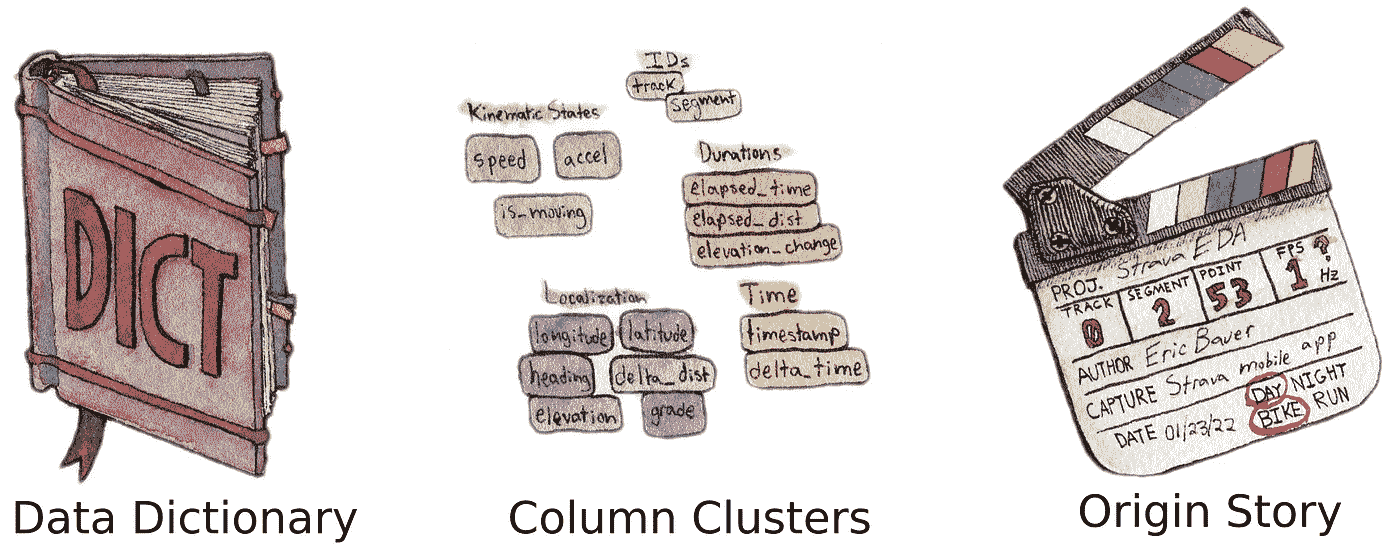 DICT
Data Dictionary
IDs
track
segment
Kinematic States
speed accel
is_moving
Durations
elapsed_time
elapsed_dist
elevation_change
Localization
longitude latitude
heading delta_dist
elevation grade
Time
timestamp
delta_time
Column Clusters
PROJ. Strava EDA
TRACK SEGMENT POINT FPS
0 2 53 1 ? Hz
AUTHOR Eric Bauer
CAPTURE Strava mobile app
DAY NIGHT
DATE 01/23/22 BIKE RUN
Origin Story